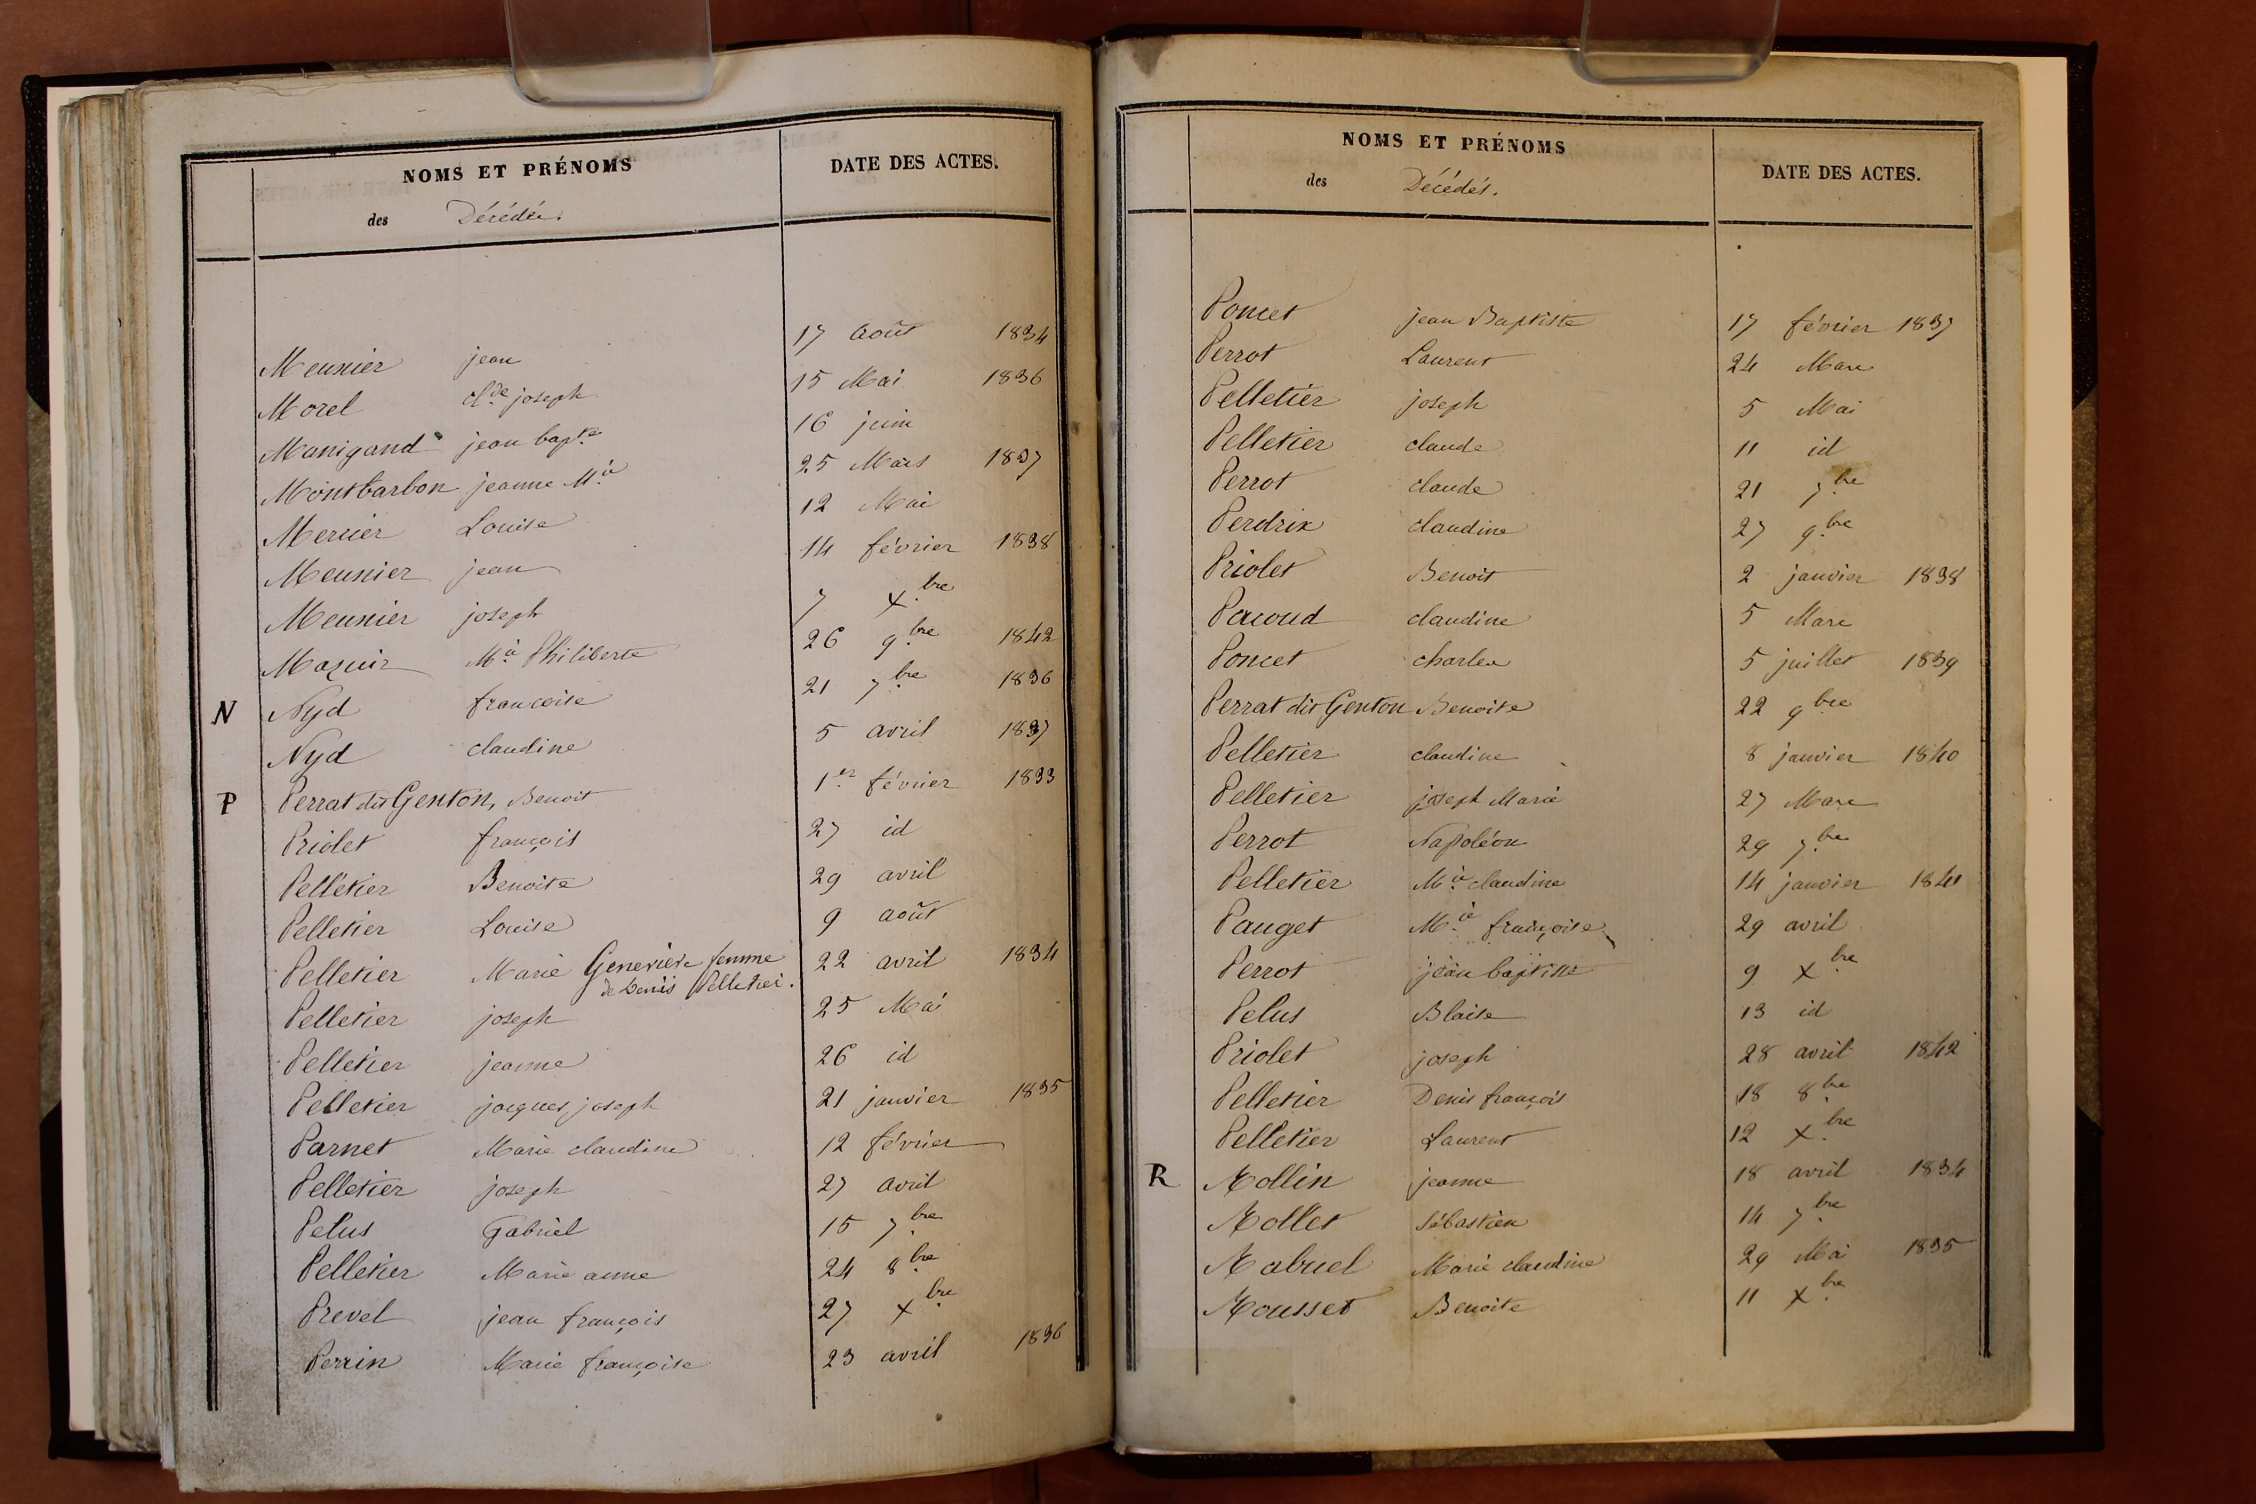 NOMS ET PRÉNOMS
DATE DES ACTES.
des Décédés.
Meunier jean 17 août 1834
Morel Cl.de joseph 15 Mai 1836
Manigand jean bap.te 16 juin
Montbarbon jeanne M.ie 25 Mars 1837
Mercier Louise 12 Mai
Meunier jean 14 février 1838
Meunier joseph 7 X.bre
Mazuir M.ie Philiberte 26 9.bre 1842
N Nyd francoise 21 7.bre 1836
Nyd claudine 5 avril 1837
P Perrat dit Genton, Benoit 1.er février 1833
Priolet françois 27 id
Pelletier Benoite 29 avril
Pelletier Louise 9 août
Pelletier Marie Geneviève femme 22 avril 1834
de Denis Pelletier.
Pelletier joseph 25 Mai
Pelletier jeanne 26 id
Pelletier jacques joseph 21 janvier 1835
Parnet Marie claudine 12 février
Pelletier joseph 27 avril
Pelus Gabriel 15 7.bre
Pelletier Marie anne 24 8.bre
Prevel jean françois 27 X.bre
Perrin Marie françoise 23 avril 1836
NOMS ET PRÉNOMS
DATE DES ACTES.
des Décédés.
Poncet jean Baptiste 17 février 1837
Perrot Laurent 24 Mars
Pelletier joseph 5 Mai
Pelletier claude 11 id
Perrot claude 21 7.bre
Perdrix claudine 27 9.bre
Priolet Benoit 2 janvier 1838
Pacoud claudine 5 Mars
Poncet charles 5 juillet 1839
Perrat dit Genton Benoite 22 9bre
Pelletier claudine 8 janvier 1840
Pelletier joseph Marie 27 Mars
Perrot Napoléon 29 7.bre
Pelletier M.ie claudine 14 janvier 1841
Pauget M.ie françoise 29 avril
Perrot jean baptiste 9 X.bre
Pelus Blaise 13 id
Priolet joseph 28 avril 1842
Pelletier Denis françois 18 8.bre
Pelletier Laurent 12 X.bre
R Rollin jeanne 18 avril 1834
Rollet Sébastien 14 7.bre
Rabuel Marie claudine 29 Mai 1835
Rousset Benoite 11 X.bre